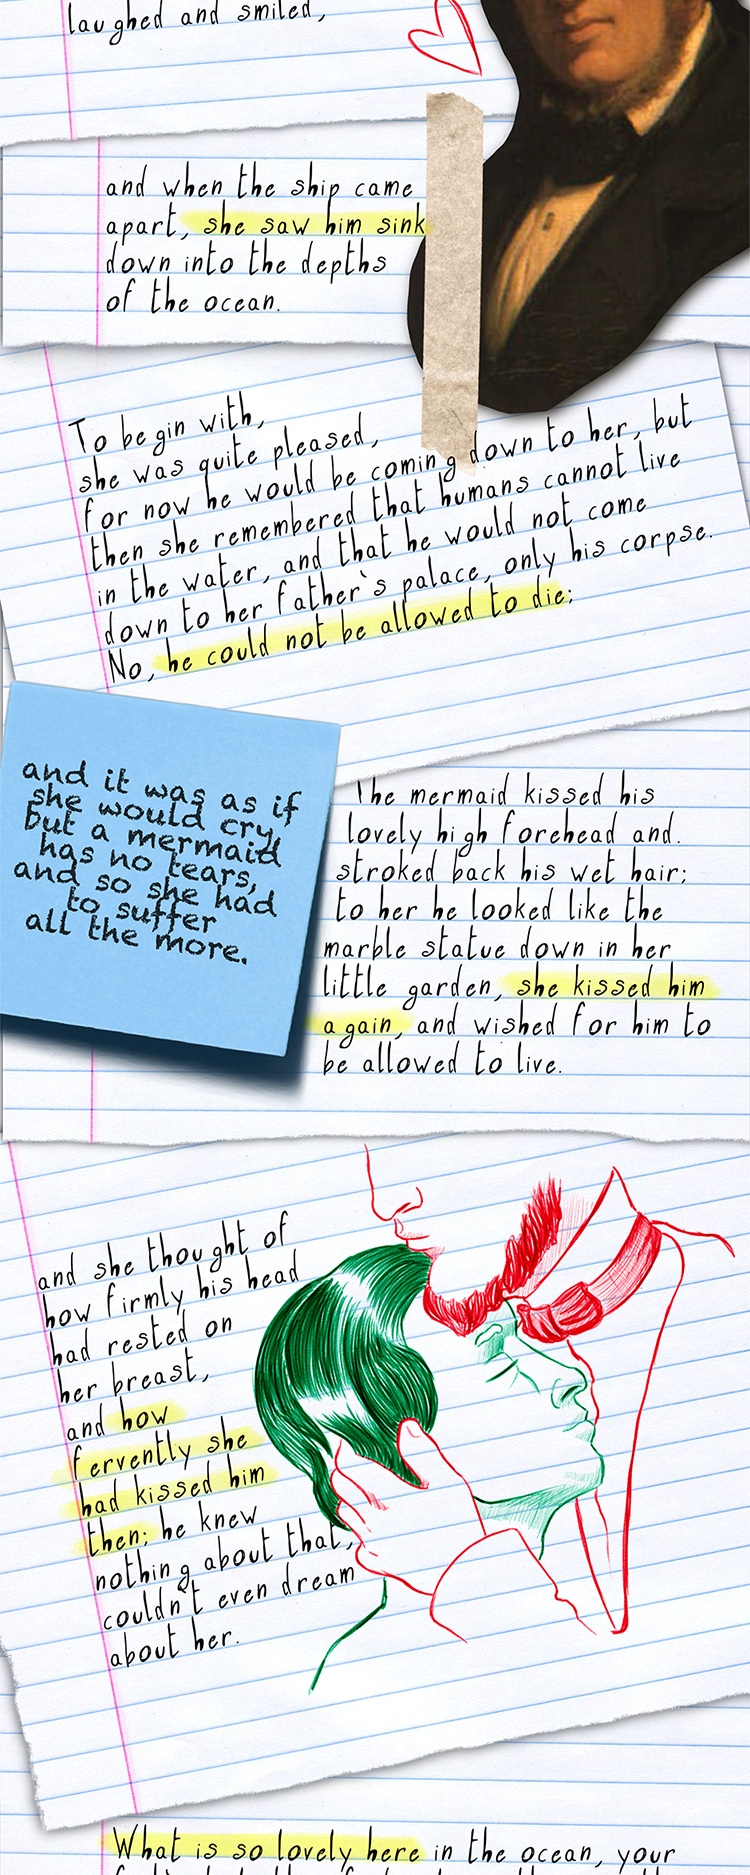 laughed and smiled,
and when the ship came
apart, she saw him sink
down into the depths
of the ocean.
To begin with,
she was quite pleased,
for now he would be coming down to her, but
then she remembered that humans cannot live
in the water, and that he would not come
down to her father`s palace, only his corpse.
No, he could not be allowed to die;
and it was as if
she would cry,
but a mermaid
has no tears,
and so she had
to suffer
all the more.
The mermaid kissed his
lovely high forehead and.
stroked back his wet hair;
to her he looked like the
marble statue down in her
little garden, she kissed him
again, and wished for him to
be allowed to live.
and she thought of
how firmly his head
had rested on
her breast,
and how
fervently she
had kissed him
then; he knew
nothing about that,
couldn't even dream
about her.
What is so lovely here in the ocean, your